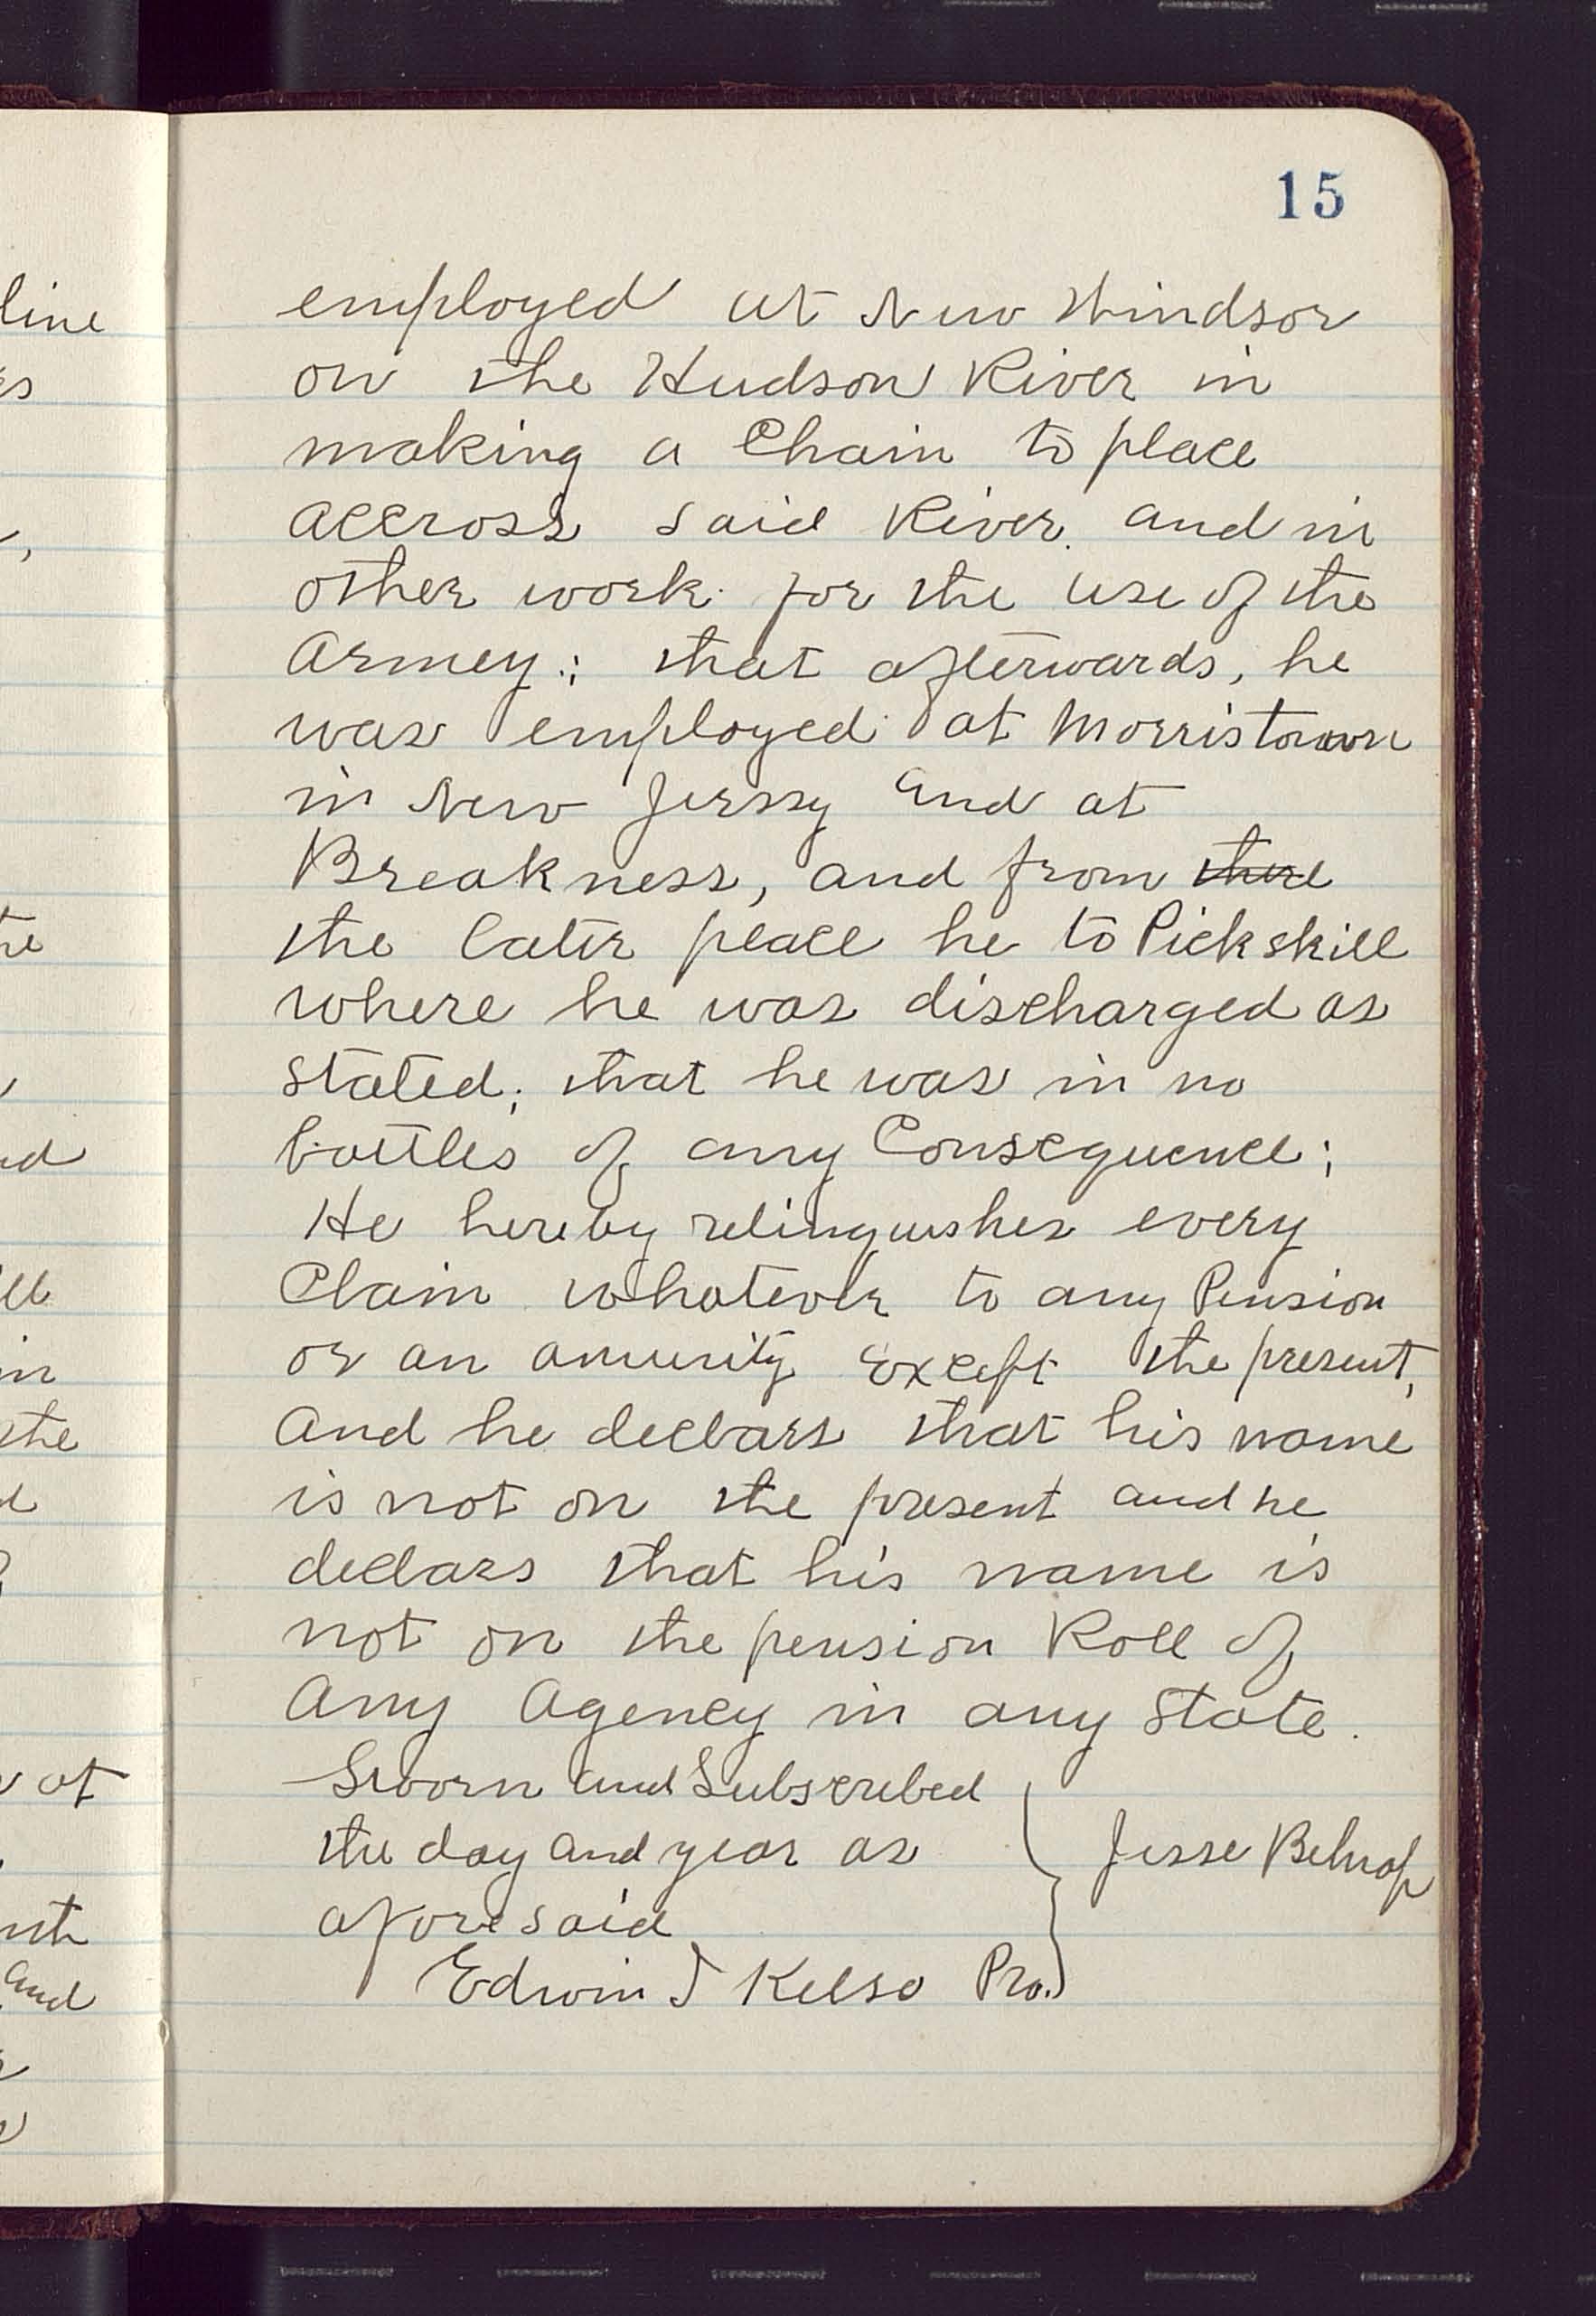 15
employed at New Windsor
on the Hudson River in
making a Chain to place
accross said River. and in
other work for the use of the
armey; that afterwards, he
was employed at Morristown
in New Jerssy and at
Breakness, and from there
the later place he to Pickskill
where he was discharged as
stated; that he was in no
battles of any Consequence;
He hereby relinquishes every
Claim whatever to any Pension
or an anunity Except the present,
and he declars that his name
is not on the present and he
declars that his name is
not on the pension Roll of
any agency in any State.
Sworn and Subscribed
the day and year as
aforesaid
Jesse
Edwin J Kelso Pro.
line
,
he
ll
in
the
at
and